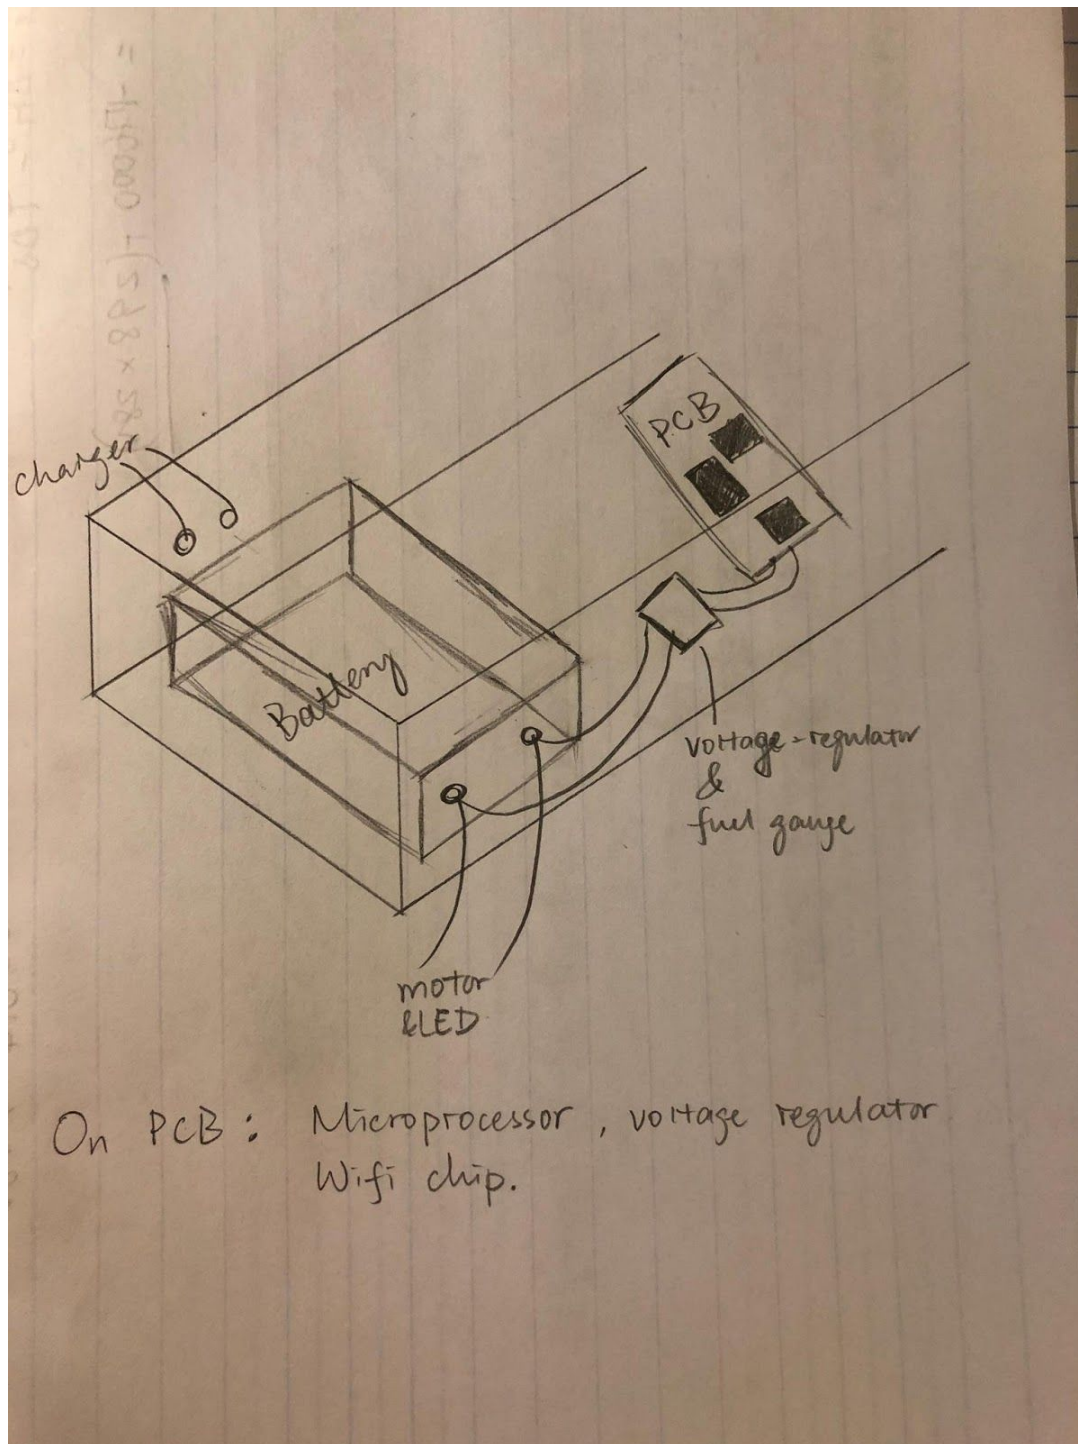 charger
PCB
Battery
voltage-regulator
&
fuel gauge
motor
&LED
On PCB: Microprocessor, voltage regulator
Wifi chip.